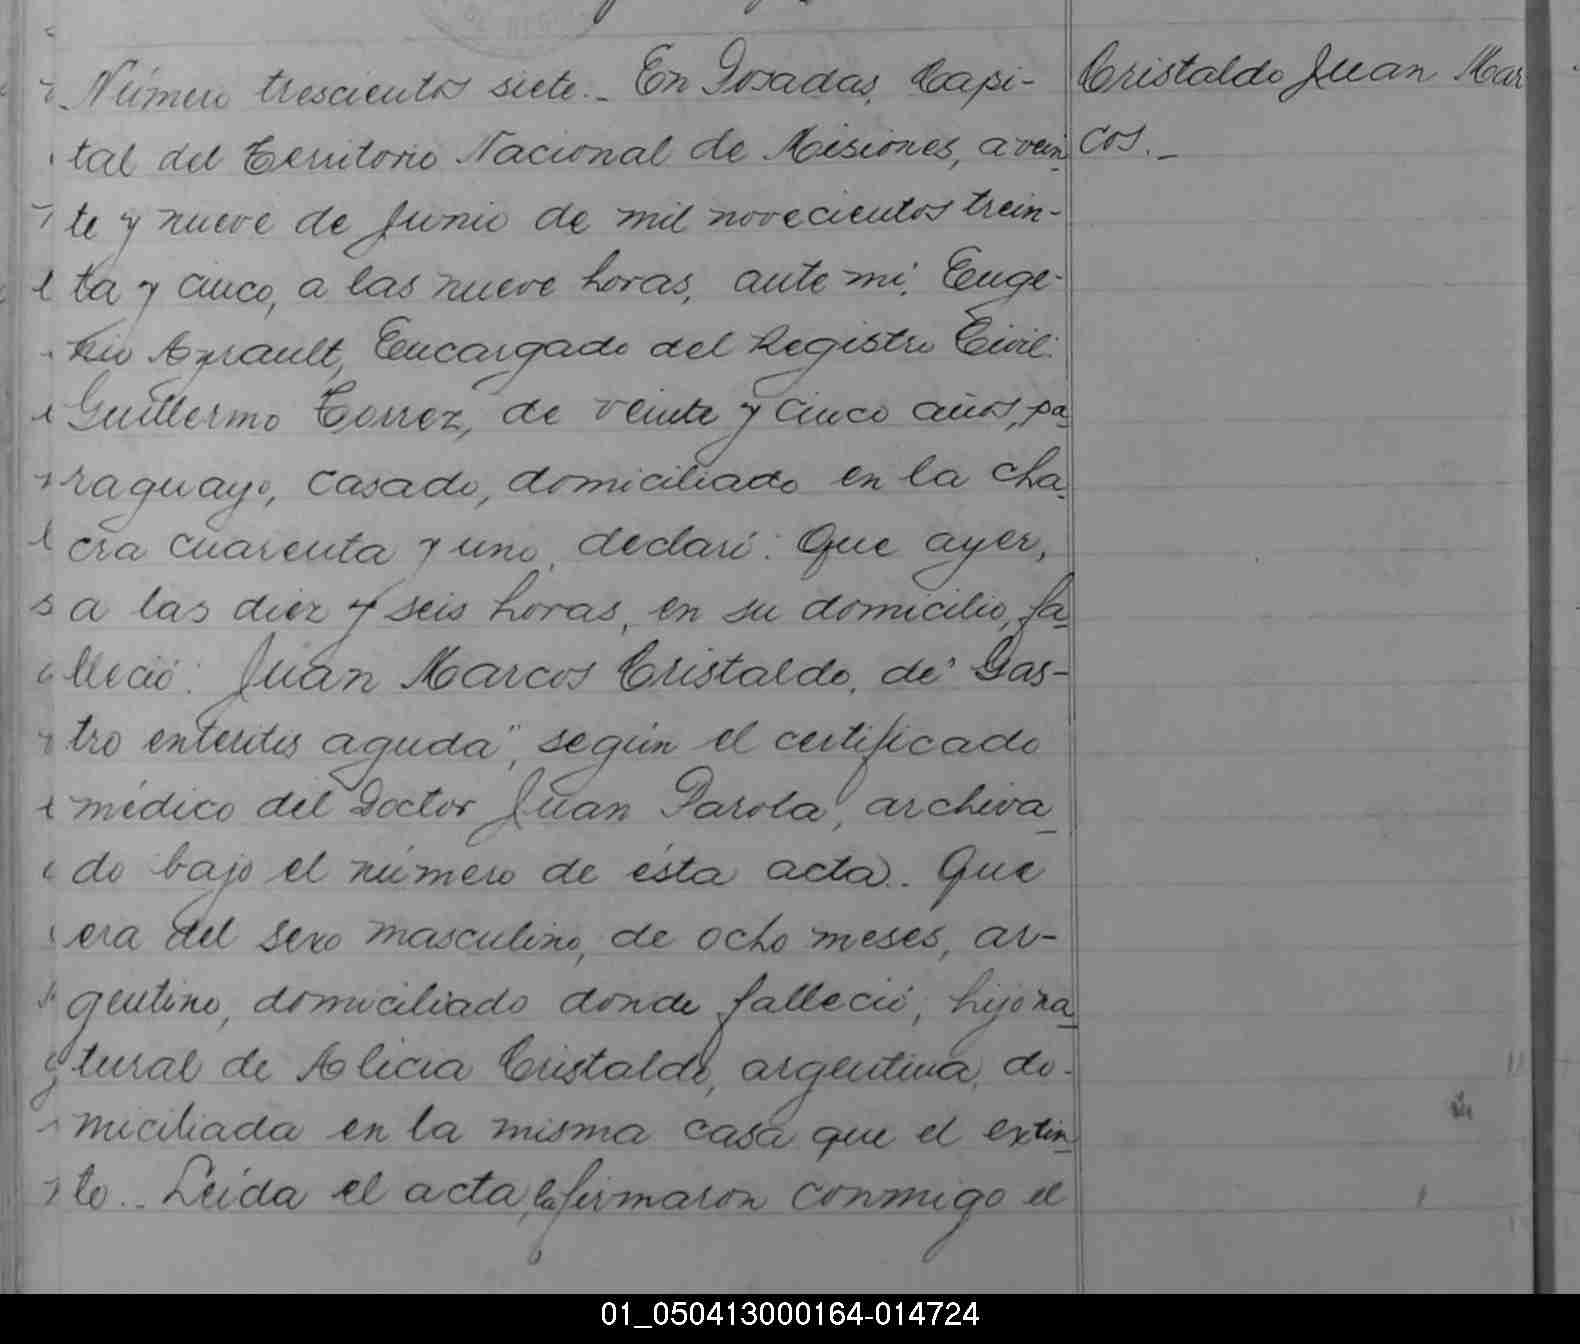 Número trescientos siete._ En Posadas, Capi-
tal del Territorio Nacional de Misiones, a vein
te y nueve de Junio de mil novecientos trein-
ta y cinco, a las nueve horas, ante mí, Euge-
nio Ayrault, Encargado del Registro Civil:
Guillermo Torrez, de veinte y cinco años, pa
raguayo, casado, domiciliado en la cha
cra cuarenta y uno, declaró: Que ayer,
a las diez y seis horas, en su domicilio, fa
lleció: Juan Marcos Cristaldo, de "Gas-
tro enteritis aguda", según el certificado
médico del Doctor Juan Parola, archiva
do bajo el número de ésta acta. Que
era del sexo masculino, de ocho meses, ar-
gentino, domiciliado donde falleció; hijo na
tural de Alicia Cristaldo, argentina, do-
miciliada en la misma casa que el extin
to._ Leída el acta, la firmaron conmigo el
Cristaldo Juan Mar
cos._
01_050413000164-014724